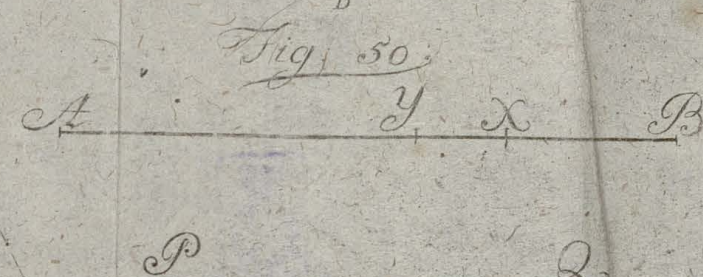 B
Fig. 50.
A Y X B
P Q